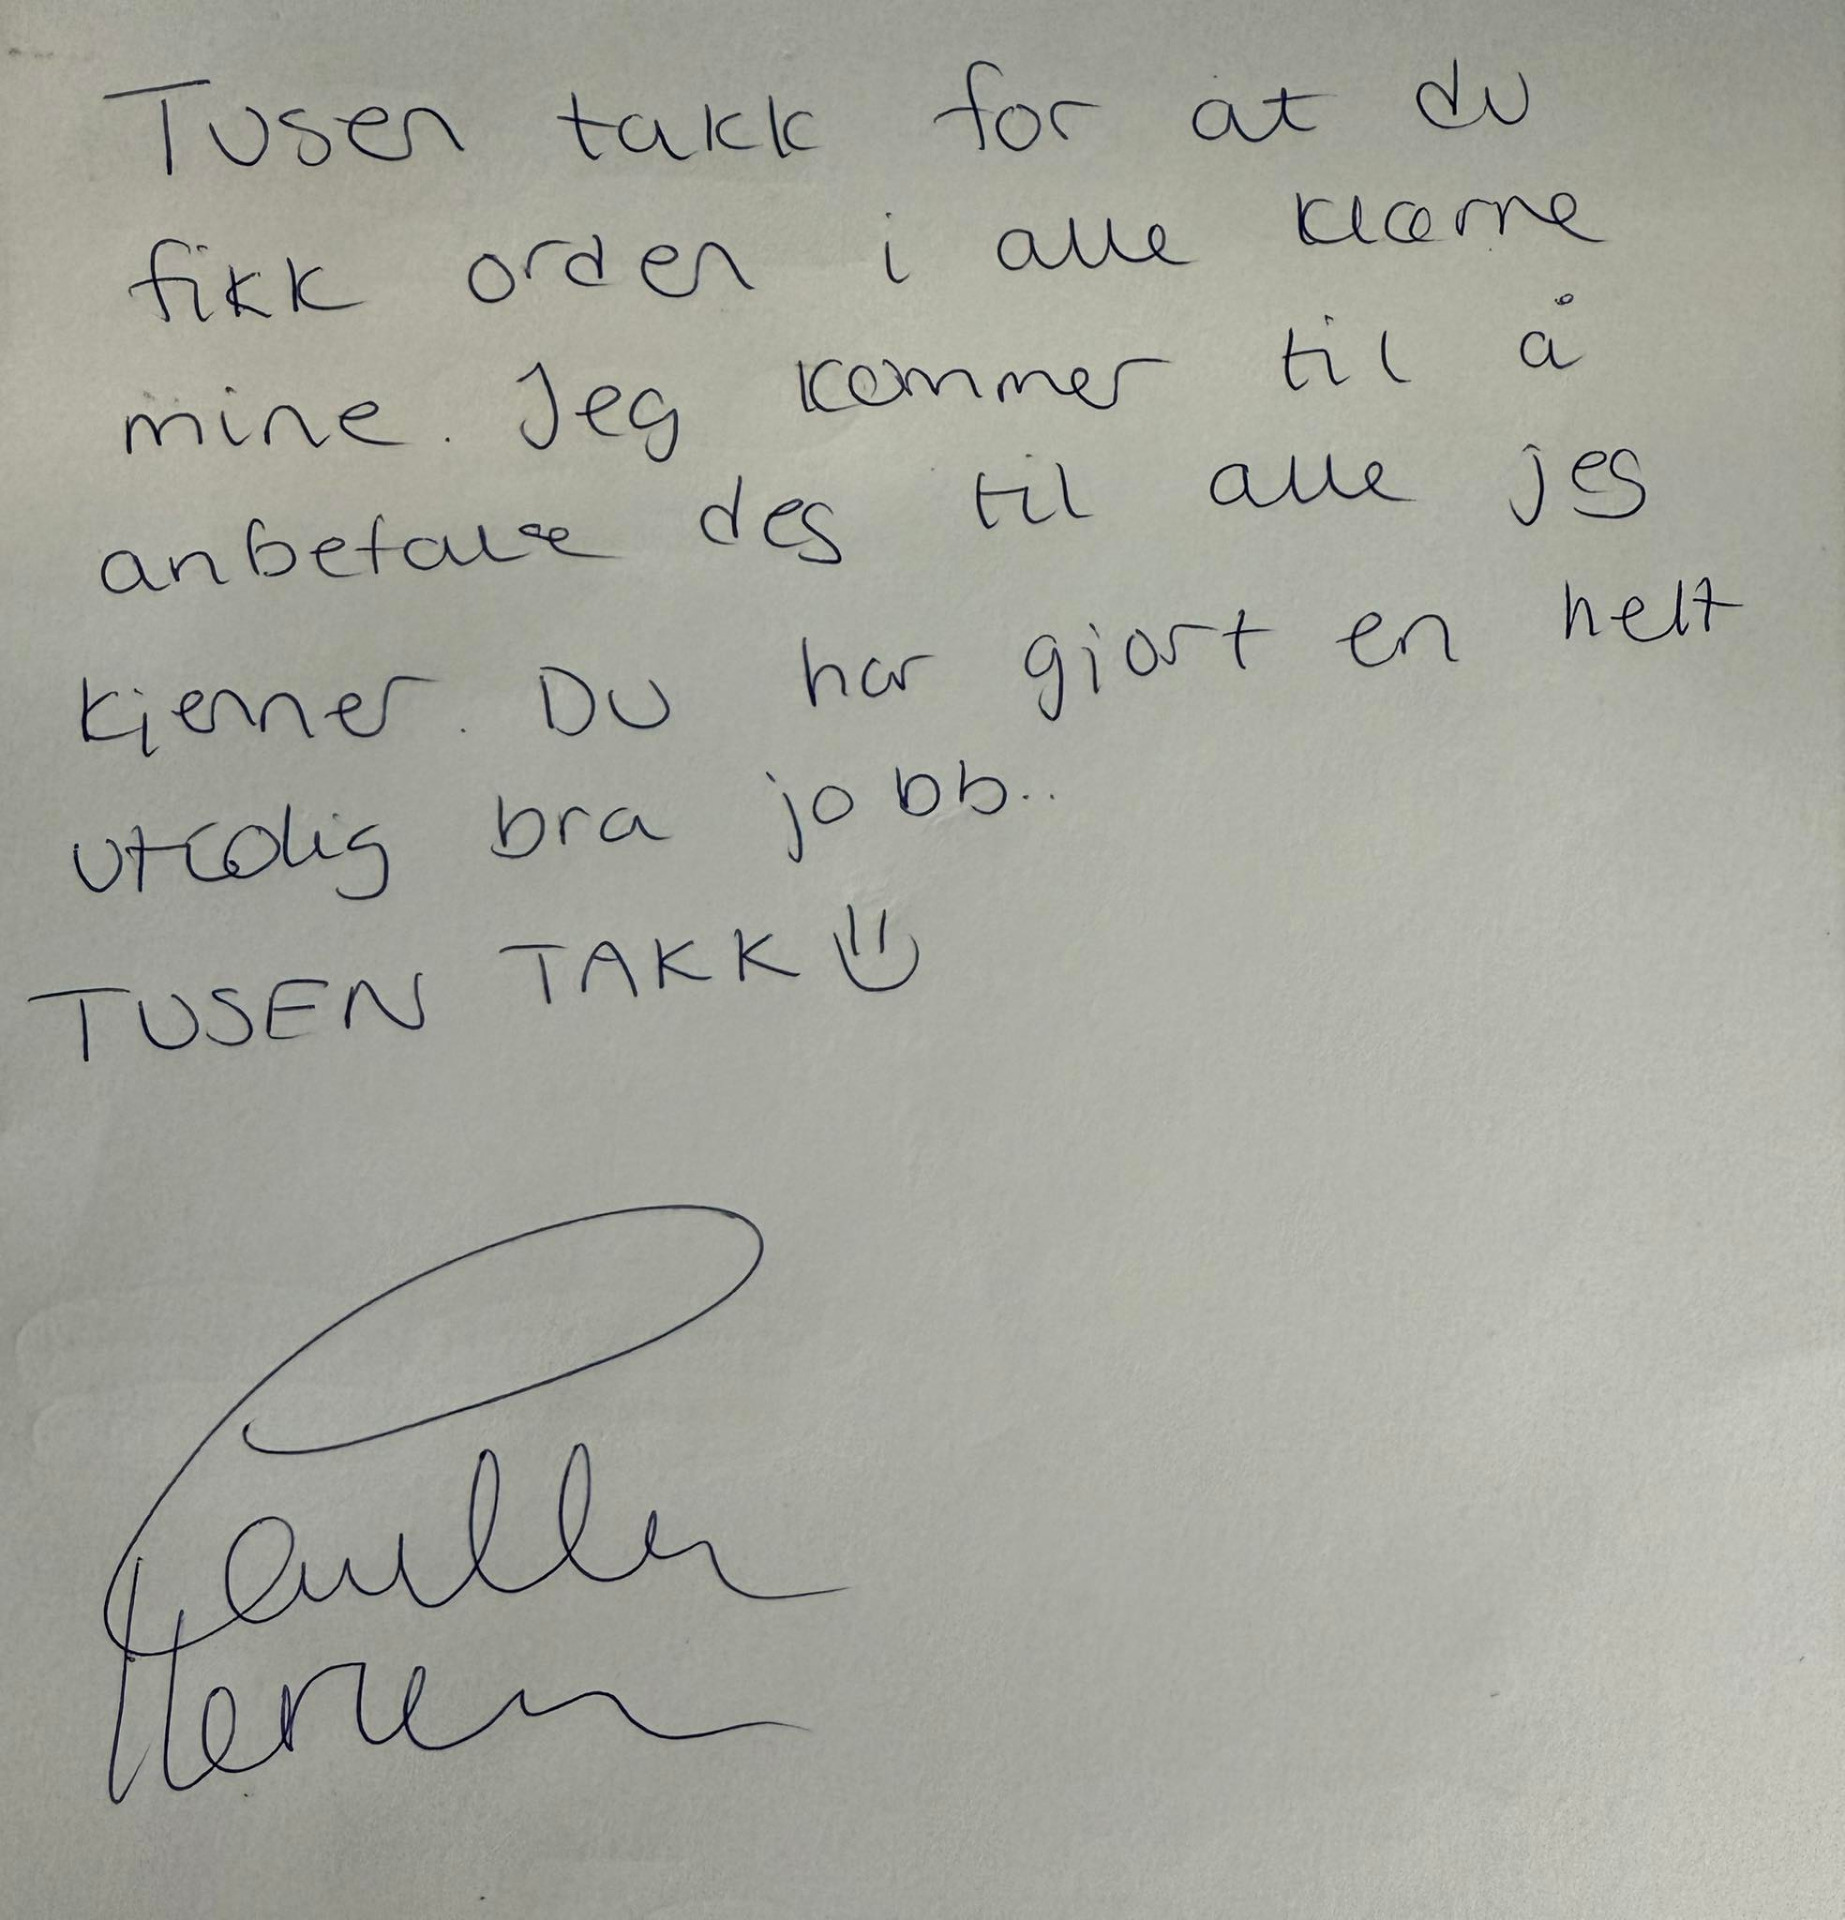 Tusen takk for at du
fikk orden i alle klærne
mine. Jeg kommer til å
anbefale deg til alle jeg
kjenner. Du har gjort en helt
utrolig bra jobb..
TUSEN TAKK